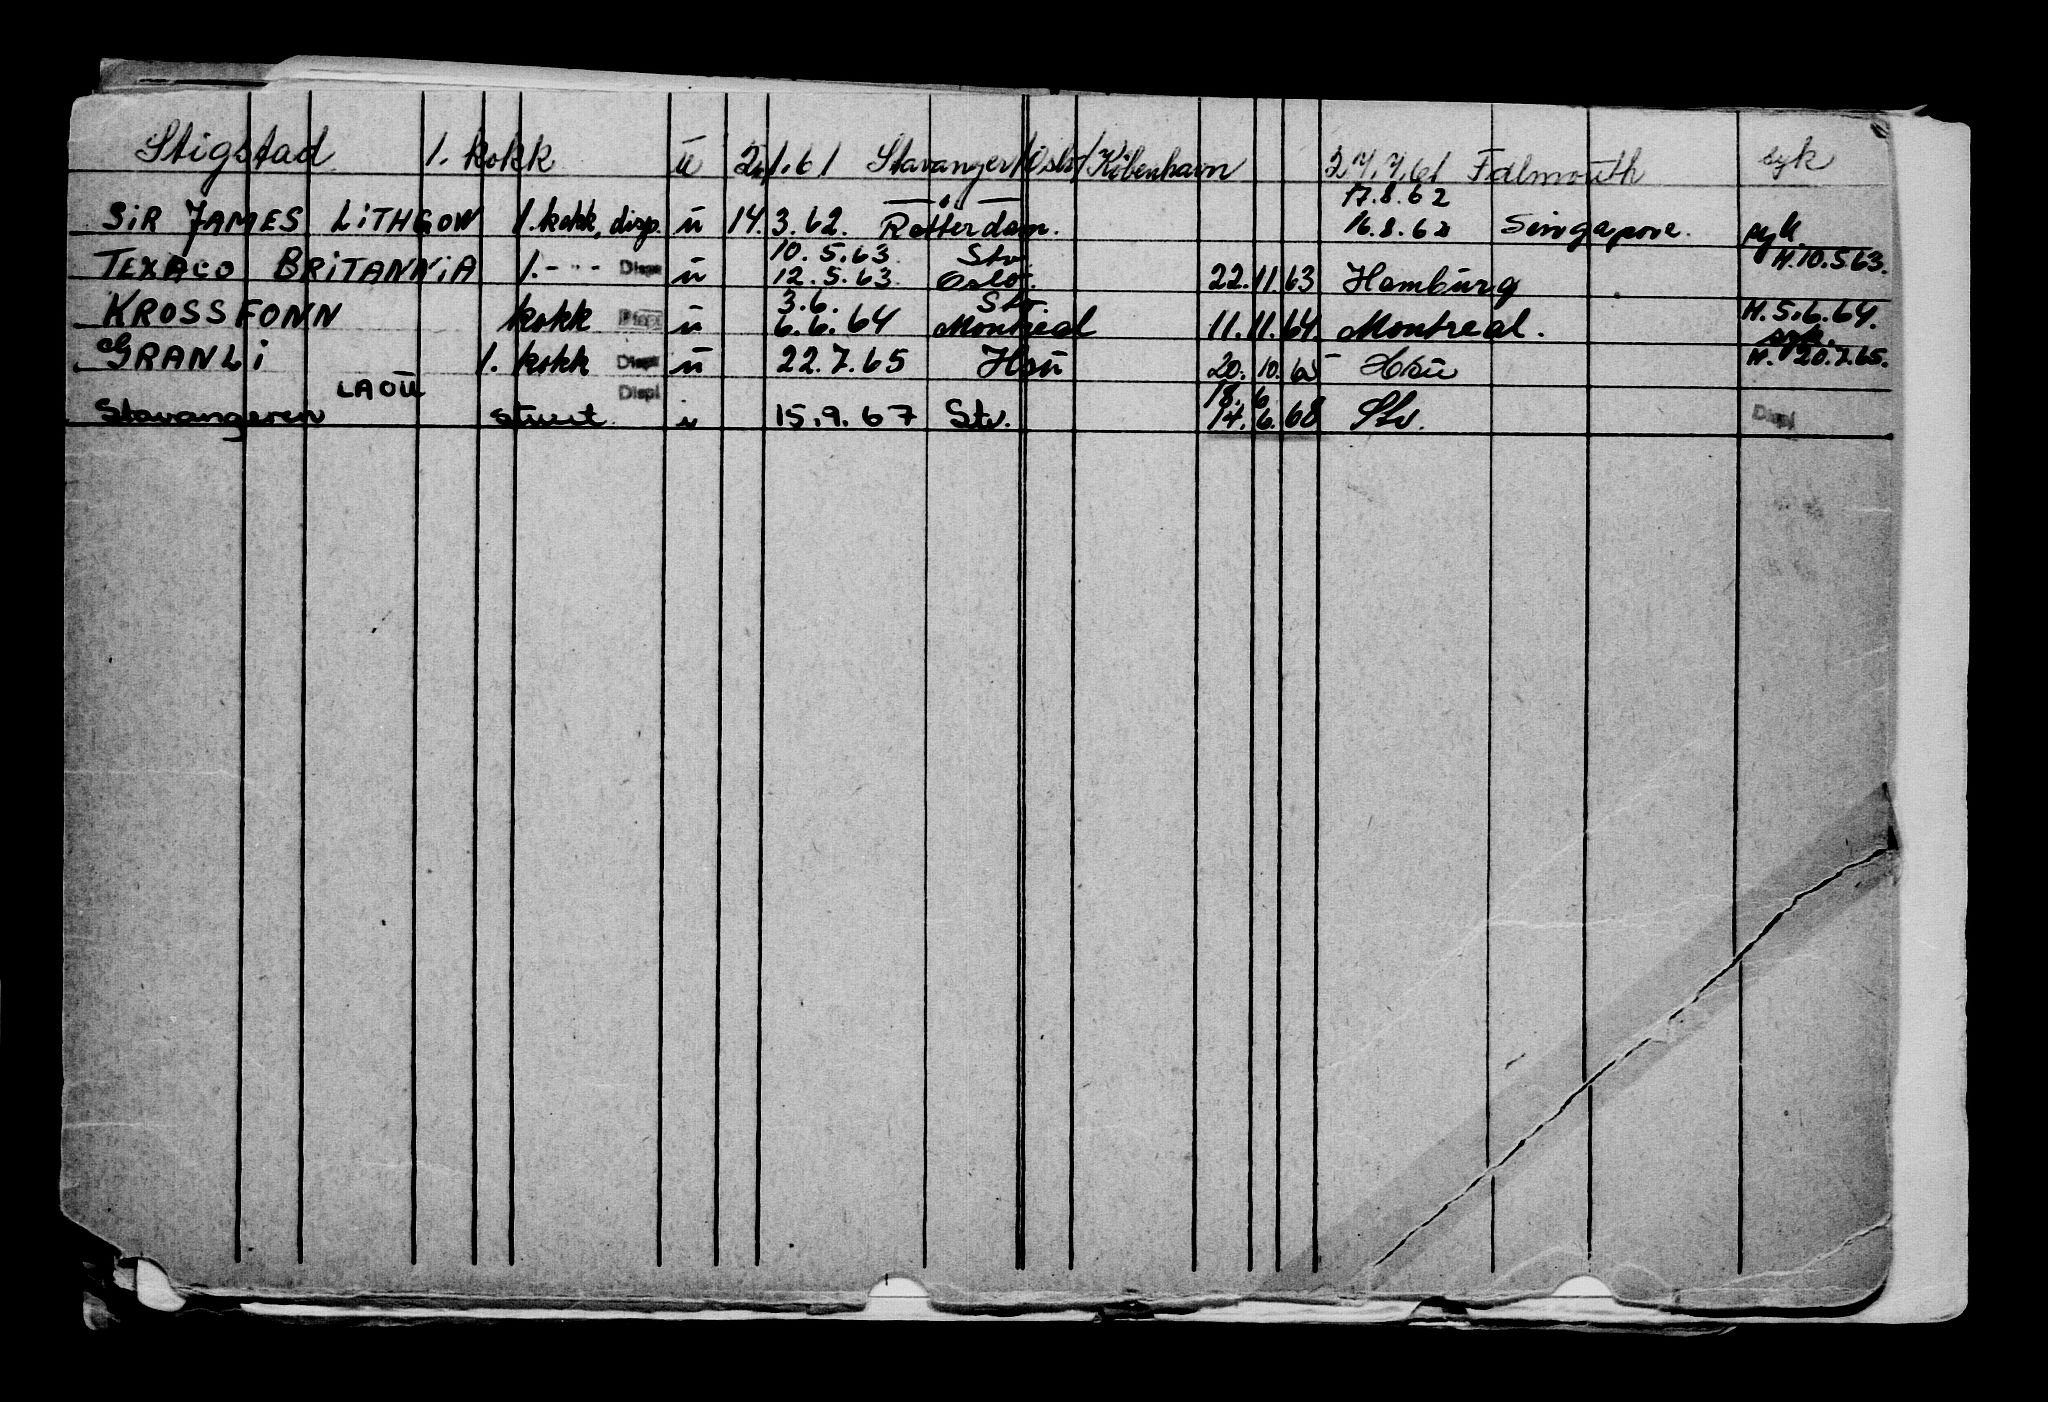 Stigstad 1. kokk u 2.1.61 Stavanger/Oslo/København 27.7.61 Falmouth syk
17.8.62
SIR JAMES LITHGOW 1. kokk, disp. u 14.3.62. Rotterdam. 16.8.62 Singapore. syk
10.5.63 Stv H.10.5.63.
TEXACO BRITANNIA 1. - " - Disp u 12.5.63. Oslo. 22.11.63 Hamburg
3.6. Stv. H.5.6.64.
KROSSFONN kokk Displ u 6.6.64 Montreal 11.11.64. Montreal. syk.
GRANLI 1. kokk Displ u 22.7.65 Hsu 20.10.65 Hsu H. 20.7.65.
LAOU Displ 18.6
Stavangeren stuert. u 15.9.67 Stv. 14.6.68 Stv. Displ